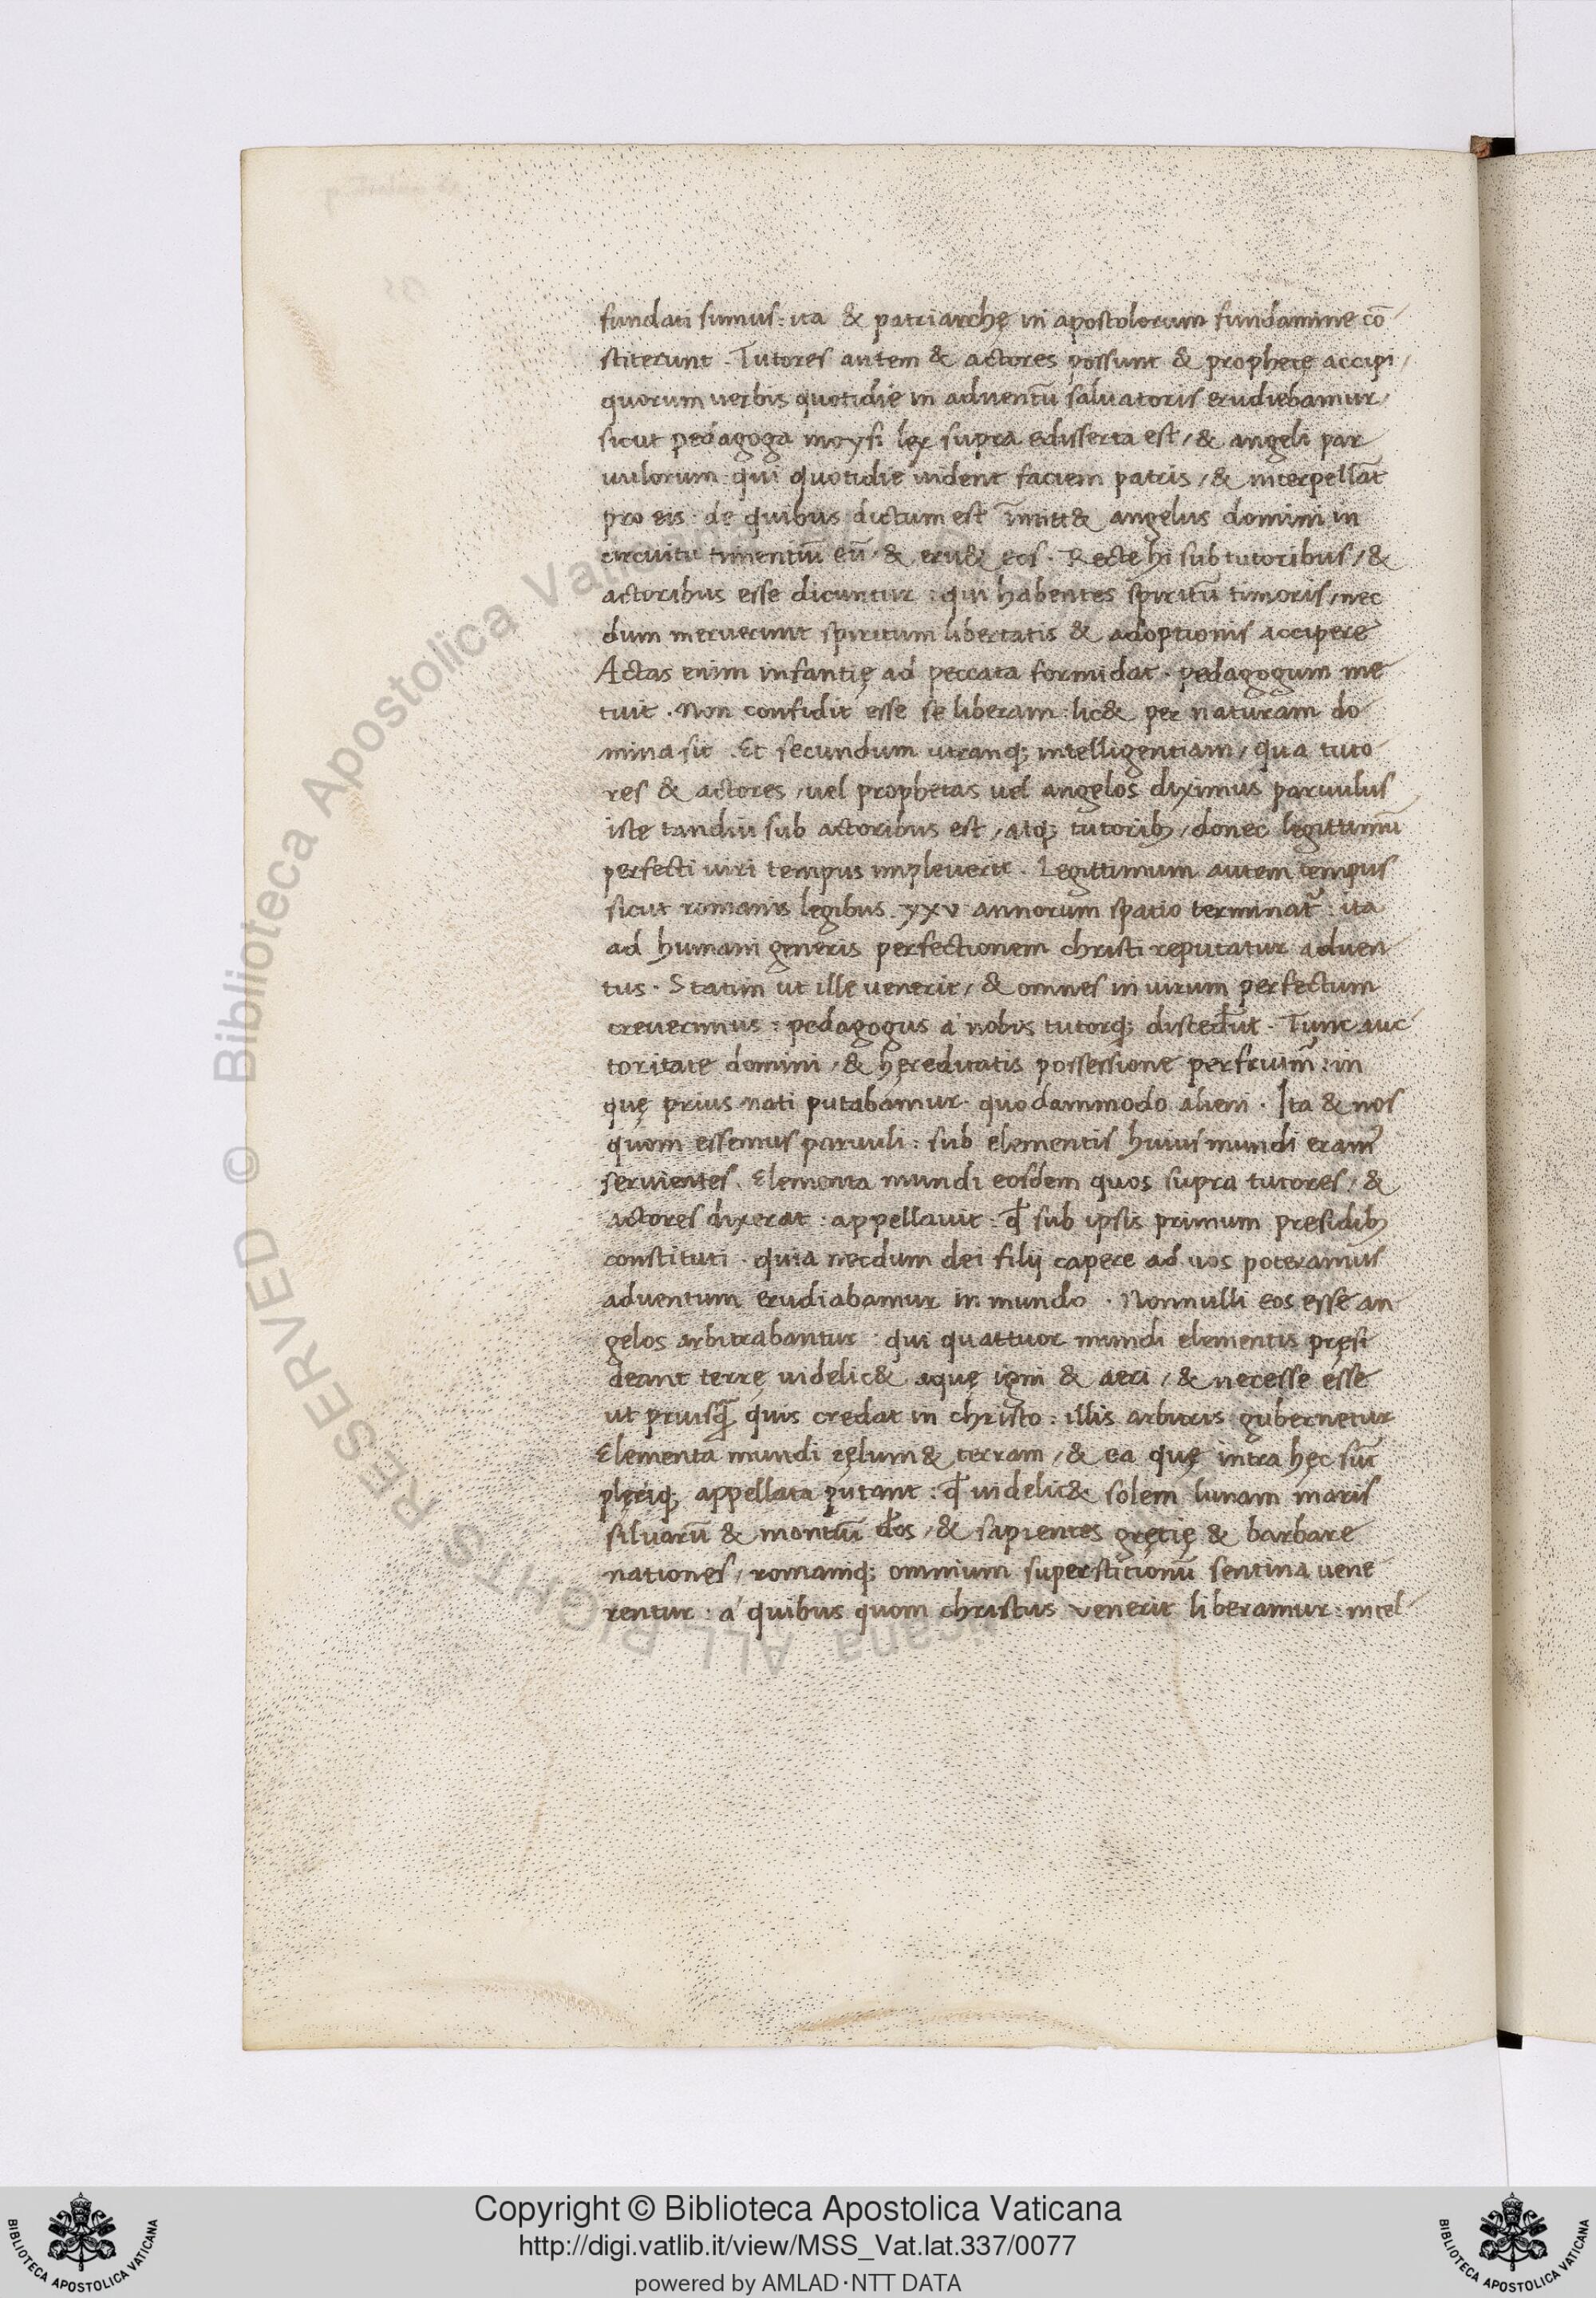 fundati sumus: ita & patriarchę in apostolorum fundamine cō
stiterunt. Tutores autem & actores possunt & prophetę accipi/
quorum verbis quotidie in adventū salvatoris erudiebamur/
sicut pedagoga moysi lex supra edisserta est/ & angeli par
uulorum: qui quotidie uident faciem patris/ & interpellāt
pro eis: de quibus dictum est īmitt& angelus domini in
circuitu timentiū eū/ & eru& eos. Recte hi sub tutoribus/ &
actoribus esse dicuntur: qui habentes spiritū timoris/ nec
dum meruerunt spiritum libertatis & adoptionis accipere
Aetas enim infantię ad peccata formidat. pedagogum me
tuit. Non confidit esse se liberam: lic& per naturam do
mina sit. Et secundum utranq; intelligentiam/ qua tuto
res & actores/ uel prophetas uel angelos diximus paruulus
iste tandiu sub actoribus est/ atq; tutorib;/ donec legittimū
perfecti uiri tempus impleverit. Legittimum autem tempus
sicut romanis legibus. xxv annorum spatio terminat̃: ita
ad humani generis perfectionem christi reputatur adven
tus. Statim ut ille venerit/ & omnes in uirum perfectum
creverimus: pedagogus á nobis tutorq; discedūt. Tunc auc
toritate domini/ & hęreditatis possessione perfruim̃: in
quę prius nati putabamur quodammodo alieni. Ita & nos
quom essemus paruuli: sub elementis huius mundi eram᾿
servientes. Elementa mundi eosdem quos supra tutores/ &
actores dixerat: appellavit: ꝙ sub ipsis primum presidib;
constituti. quia necdum dei filij capere ad uos poteramus
adventum erudiabamur in mundo. Nonnulli eos esse an
gelos arbitrabantur: qui quattuor mundi elementis pręsi
deant terrę uidelic& aquę igni & aeri/ & necesse esse
ut priusq̃ quis credat in christo: illis arbitris gubernetur
Elementa mundi cęlum & terram/ & ea quę intra hęc sūt
plęriq; appellata putant: ꝙ uidelic& solem lunam maris
silvarū & montiū deos/ & sapientes gręcię & barbare
nationes/ romaniq; omnium superstitionū sentina vene
rentur. á quibus quom christus venerit liberamur: intel
Copyright © Biblioteca Apostolica Vaticana
http://digi.vatlib.it/view/MSS_Vat.lat.337/0077
powered by AMLAD·NTT DATA
BIBLIOTECA APOSTOLICA VATICANA
BIBLIOTECA APOSTOLICA VATICANA